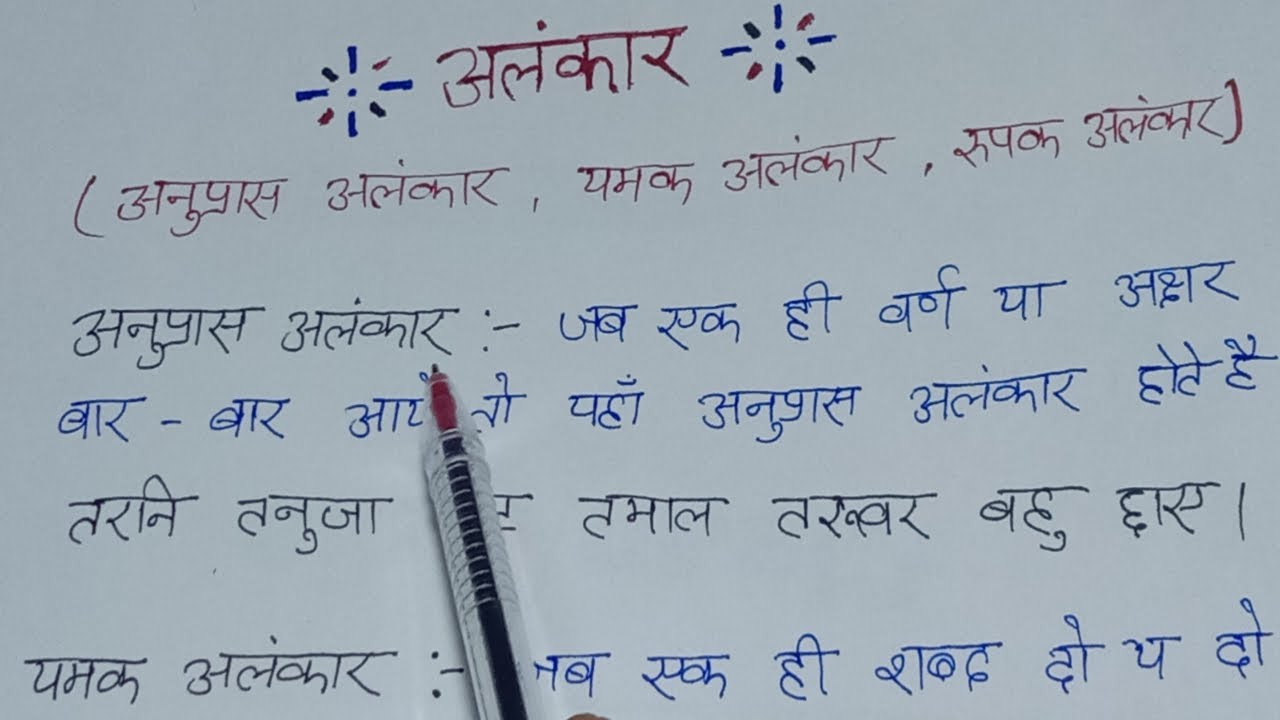 अलंकार
( अनुप्रास अलंकार , यमक अलंकार , रुपक अलंकार)
अनुप्रास अलंकार :- जब एक ही वर्ण या अक्षर
बार - बार तो यहाँ अनुप्रास अलंकार होते है
तरनि तनुजा तमाल तरूवर बहु छाए।
यमक अलंकार :- जब एक ही शब्द दो य दो